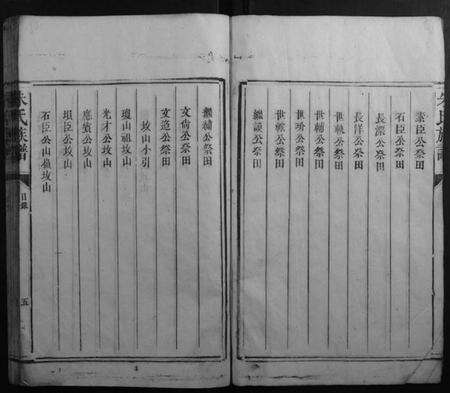 素臣公祭田
石臣公祭田
長源公祭田
長洋公祭田
世執公祭田
世輔公祭田
世 公祭田
世 公祭田
繼談公祭田
繼緒公祭田
文尚公祭田
文造公祭田
坟山小引
瓊山祖坟山
光才公坟山
應賓公坟山
珼臣公坟山
石臣公山嶺坟山
朱氏族譜
目錄
五
朱氏族譜